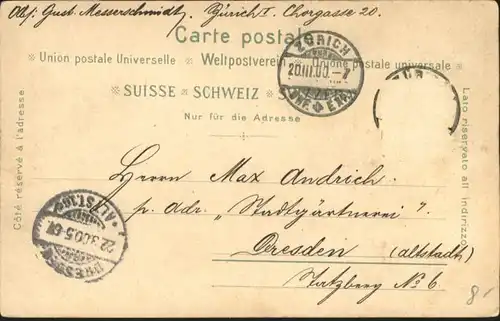 Abs: Gust. Messerschmidt, Zürich I. Chorgasse 20.
Carte postale
Union postale Universelle Weltpostverein Unione postale universale
SUISSE SCHWEIZ
Nur für die Adresse
Côté réservé à l'adresse
Lato riservato all'indirizzo
ZÜRICH
20.III.00.-7
Herrn Max Andrich
p. adr. „Stadtgärtnerei".
Dresden (altstadt)
Tatzberg No 6
DRESDEN ALTST.16
22.3.00.5-6N.
8.-